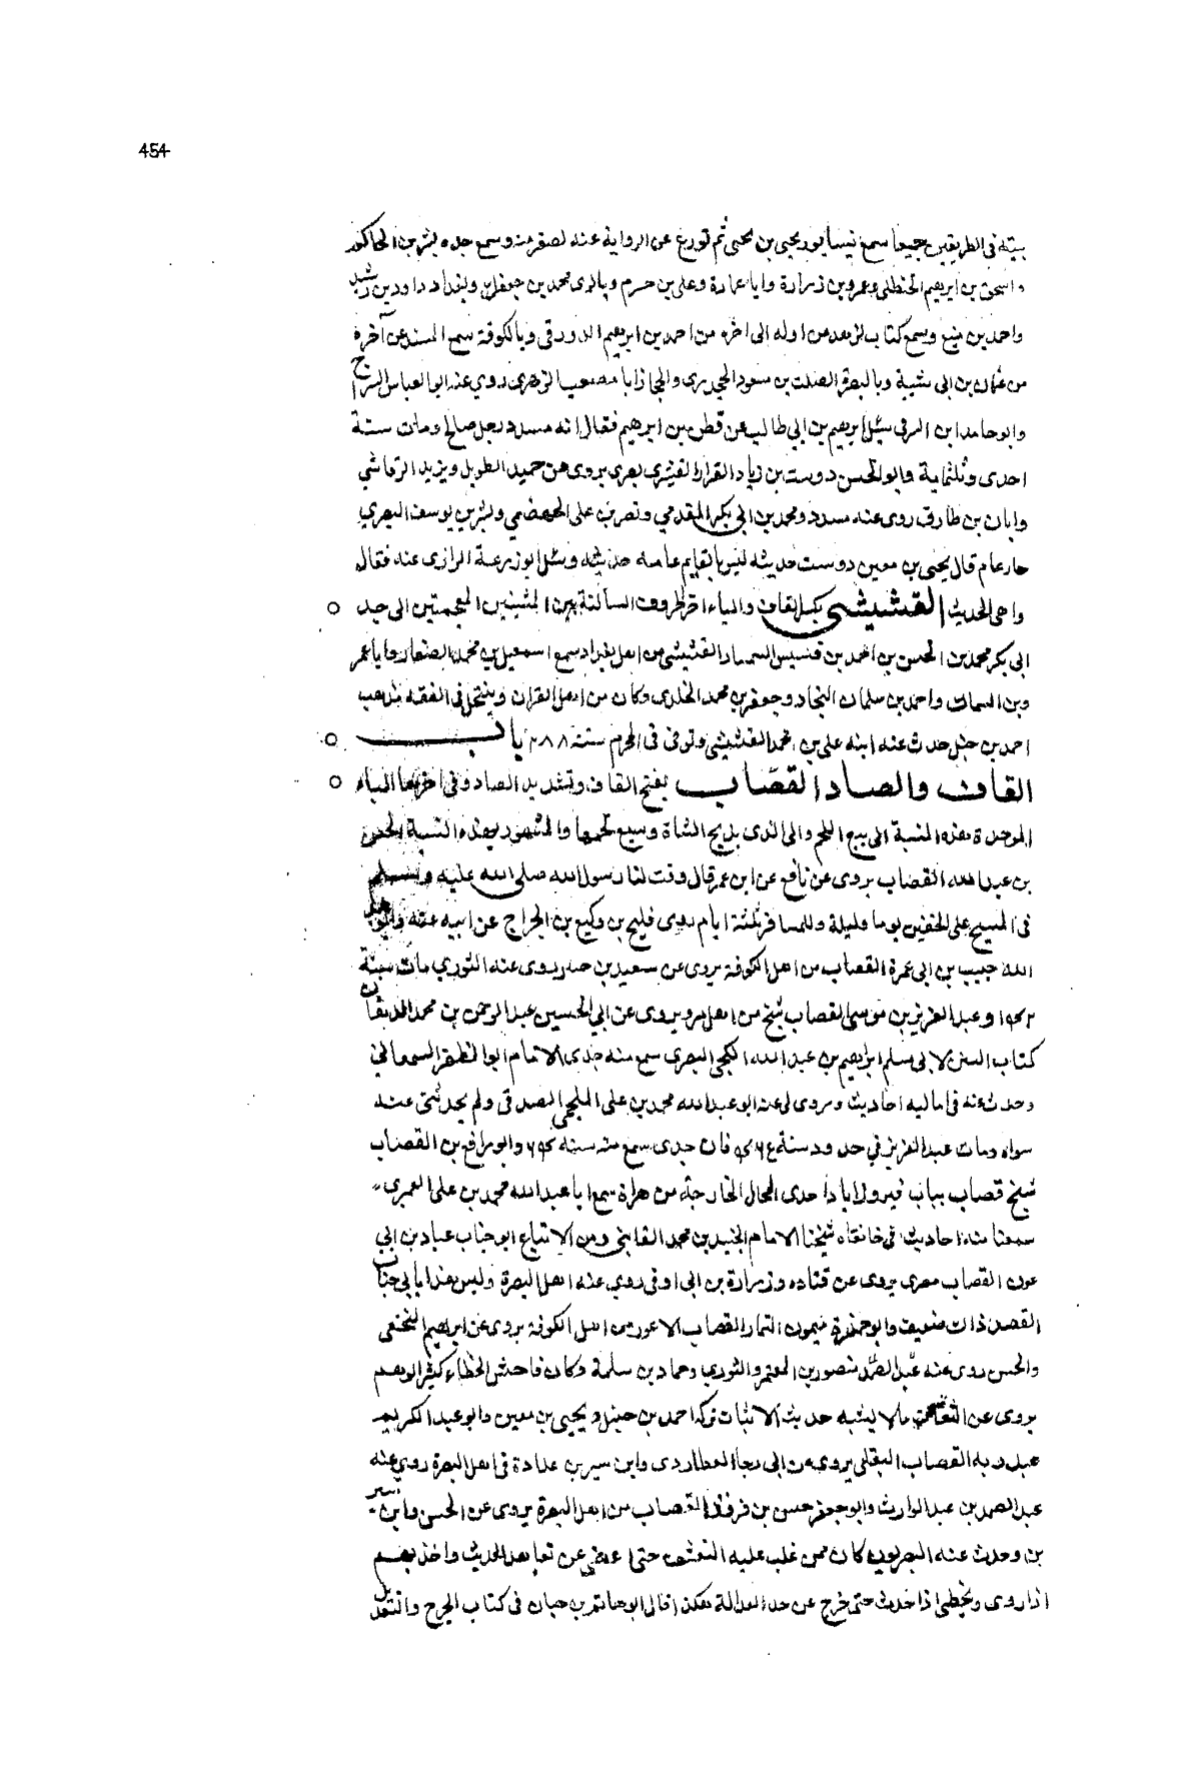 454
بيته فى الطريقين جميعا سمع نيسابور يحيى بن يحيى ثم تورع عن الرواية عنه لصغر سنه وسمع جده بشر بن الحكم
واسحق بن ابرهيم الحنظلى وعمرو بن زرارة وابا عمارة وعلى بن حرم وبالرى محمد بن وببغداد داود بن رشيد
واحمد بن منيع وسمع كتاب من اوله الى اخره من احمد بن ابرهيم الدورقى وبالكوفة سمع المسند عن آخره
من عثمان بن ابى شيبة وبالبصرة الصلت بن مسعود الجحدرى وبالحجاز ابا مصعب الزهرى روى عنه ابو العباس السراج
وابو حامد ابن الشرقى سئل ابرهيم بن ابي طالب عن قطن بن ابرهيم فقال انه مسدد رجل صالح ومات سنة
احدى وثلثماية وابو الحسن دوست بن زياد القزاز القشيرى بصرى يروى عن حميد الطويل ويزيد الرقاشي
وابان بن طارق روى عنه مسدد ومحمد بن ابى بكر المقدمي ونصر بن على الجهضمي وبشر بن يوسف البصري
جار عام قال يحيى بن معين دوست حديثه ليس بالقايم عامه حديثه وسئل ابو زرعة الرازى عنه فقال
واهى الحديث القشيشى بكسر القاف والياء اخر الحروف الساكنة بين الشينين المعجمتين الى جد
ابى بكر محمد بن الحسن بن احمد بن قشيش السمسار القشيشى من اهل بغداد سمع اسمعيل بن محمد الصفار وابا عمر
وبن السماك واحمد بن سلمان النجاد وجعفر بن محمد الخلدى وكان من اهل القران وينتحل فى الفقه مذهب
احمد بن حنبل حدث عنه ابنه على بن محمد القشيشى وتوفى فى المحرم سنة ٣٨٨ باب
القاف والصاد القصاب بفتح القاف وتشديد الصاد وفى اخرها الباء
الموحدة هذه النسبة الى بيع اللحم والى الذى يذبح الشاة ويبيع لحمها والمشهور بهذه النسبة الحسن
بن عبد الله القصاب يروى عن نافع عن ابن عمر قال وقت لنا رسول الله صلى الله عليه وسلم
فى المسح على الخفين يوما وليلة وللمسافر ثلثة ايام روى فليح بن وكيع بن الجراح عن ابيه عنه وابو عبد
الله حبيب بن ابى عمرة القصاب من اهل الكوفة يروى عن سعيد بن جبير روى عنه الثوري مات سنة
١٤٢ وعبد العزيز بن موسى القصاب شيخ من اهل مرو يروى عن ابي الحسين عبد الرحمن بن محمد الدهقان
كتاب السنن لابى مسلم ابراهيم بن عبد الله الكجى البصرى سمع منه جدى الامام ابو المظفر السمعاني
وحدث عنه فى اماليه احاديث وروى لى عنه ابو عبد الله محمد بن على الصدفى ولم يحدثنى عنه
سواه ومات عبد العزيز في حدود سنة فان جدى سمع منه سنة وابو رافع بن القصاب
شيخ قصاب بباب فيروزاباد احدى المحال الخارجة من هراة سمع ابا عبد الله محمد بن على العمرى
سمعنا منه احاديث فى خانقاه شيخنا الامام الجنيد بن محمد القاينى ومن الاتباع ابو جناب عباد بن ابي
عون القصاب بصرى يروى عن قتادة وزرارة بن ابى اوفى روى عنه اهل البصرة وليس هذا بابي جناب
القصاب ذاك ضعيف وابو حمزة ميمون التمار القصاب الاعور من اهل الكوفة يروى عن ابرهيم النخعى
والحسن روى عنه عبد الصمد منصور بن المعتمر والثوري وحماد بن سلمة وكان فاحش الخطاء كثير الوهم
يروى عن الثقات ما لا يشبه حديث الاثبات تركه احمد بن حنبل ويحيى بن معين وابو عبد الكريم
عبد ربه القصاب يروى عن ابى رجاء العطاردى وابن سيرين عداده فى اهل البصرة روى عنه
عبد الصمد بن عبد الوارث وابو جعفر جسر بن فرقد القصاب من اهل البصرة يروى عن الحسن وابن سير
ين وحدث عنه البصريون كان ممن غلب عليه التقشف حتى اغضى عن تعاهد الحديث واخذ يهم
اذا روى ويخطى اذا حدث حتى خرج عن حد العدالة هكذا قال ابو حاتم بن حبان فى كتاب الجرح والتعديل